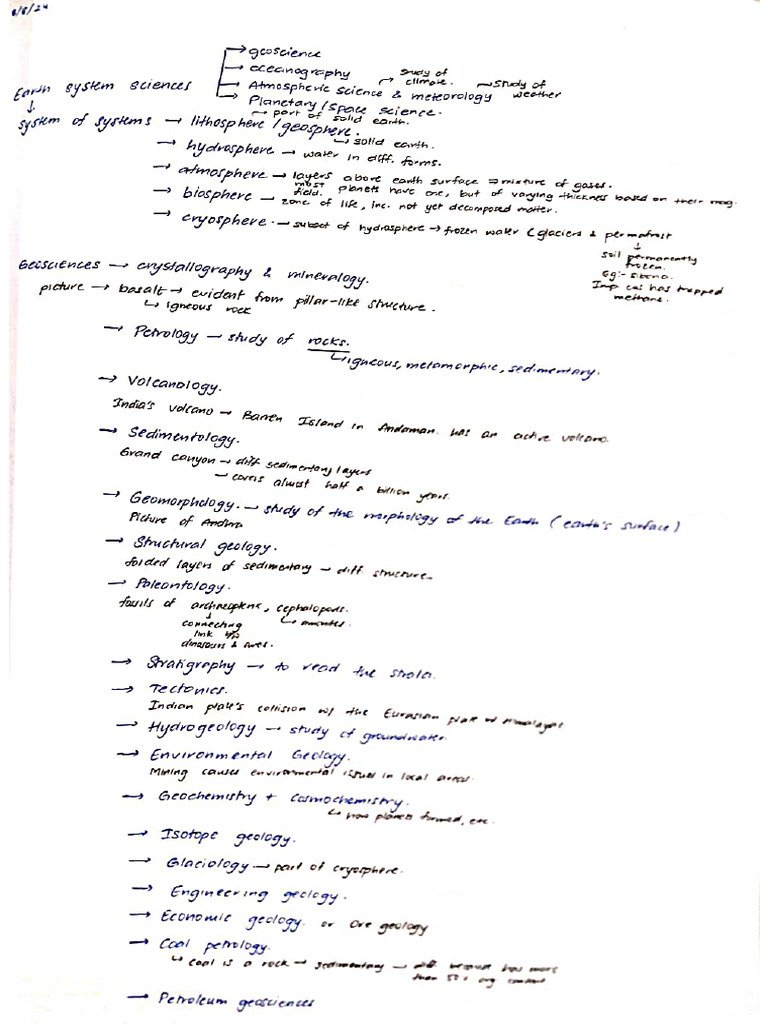 8/8/24
→ geoscience
→ oceanography
study of climate. → study of weather
Earth system sciences → Atmospheric science & meteorology
→ Planetary / space science.
↳ part of solid earth.
↓
system of systems → lithosphere / geosphere.
↳ solid earth.
→ hydrosphere → water in diff. forms.
→ atmosphere → layers above earth surface → mixture of gases.
most planets have one, but of varying thickness based on their mag. field.
→ biosphere → zone of life, inc. not yet decomposed matter.
→ cryosphere → subset of hydrosphere → frozen water (glaciers & permafrost
↓
soil permanently
frozen.
Eg:- siberia.
Imp cus has trapped
methane.
Geosciences → crystallography & mineralogy.
picture → basalt → evident from pillar-like structure.
↳ igneous rock
→ Petrology → study of rocks.
↳ igneous, metamorphic, sedimentary.
→ Volcanology.
India's volcano → Barren Island in Andaman. has an active volcano.
→ Sedimentology.
Grand canyon → diff sedimentary layers
→ covers almost half a billion years.
→ Geomorphology. → study of the morphology of the Earth (earth's surface)
Picture of Andhra
→ Structural geology.
folded layers of sedimentary → diff structure.
→ Paleontology.
fossils of cephalopods.
↓
connecting
link b/w
dinasours & aves.
→ Stratigraphy → to read the strata.
→ Tectonics.
Indian plate's collision w/ the Eurasian plate Himalayas
→ Hydrogeology → study of groundwater.
→ Environmental Geology.
Mining causes environmental issues in local areas.
→ Geochemistry + Cosmochemistry.
↳ how planets formed, etc.
→ Isotope geology.
→ Glaciology → part of cryosphere.
→ Engineering geology.
→ Economic geology. or Ore geology
→ Coal petrology.
↳ coal is a rock → sedimentary → diff because has more
than 50% org content
→ Petroleum geosciences